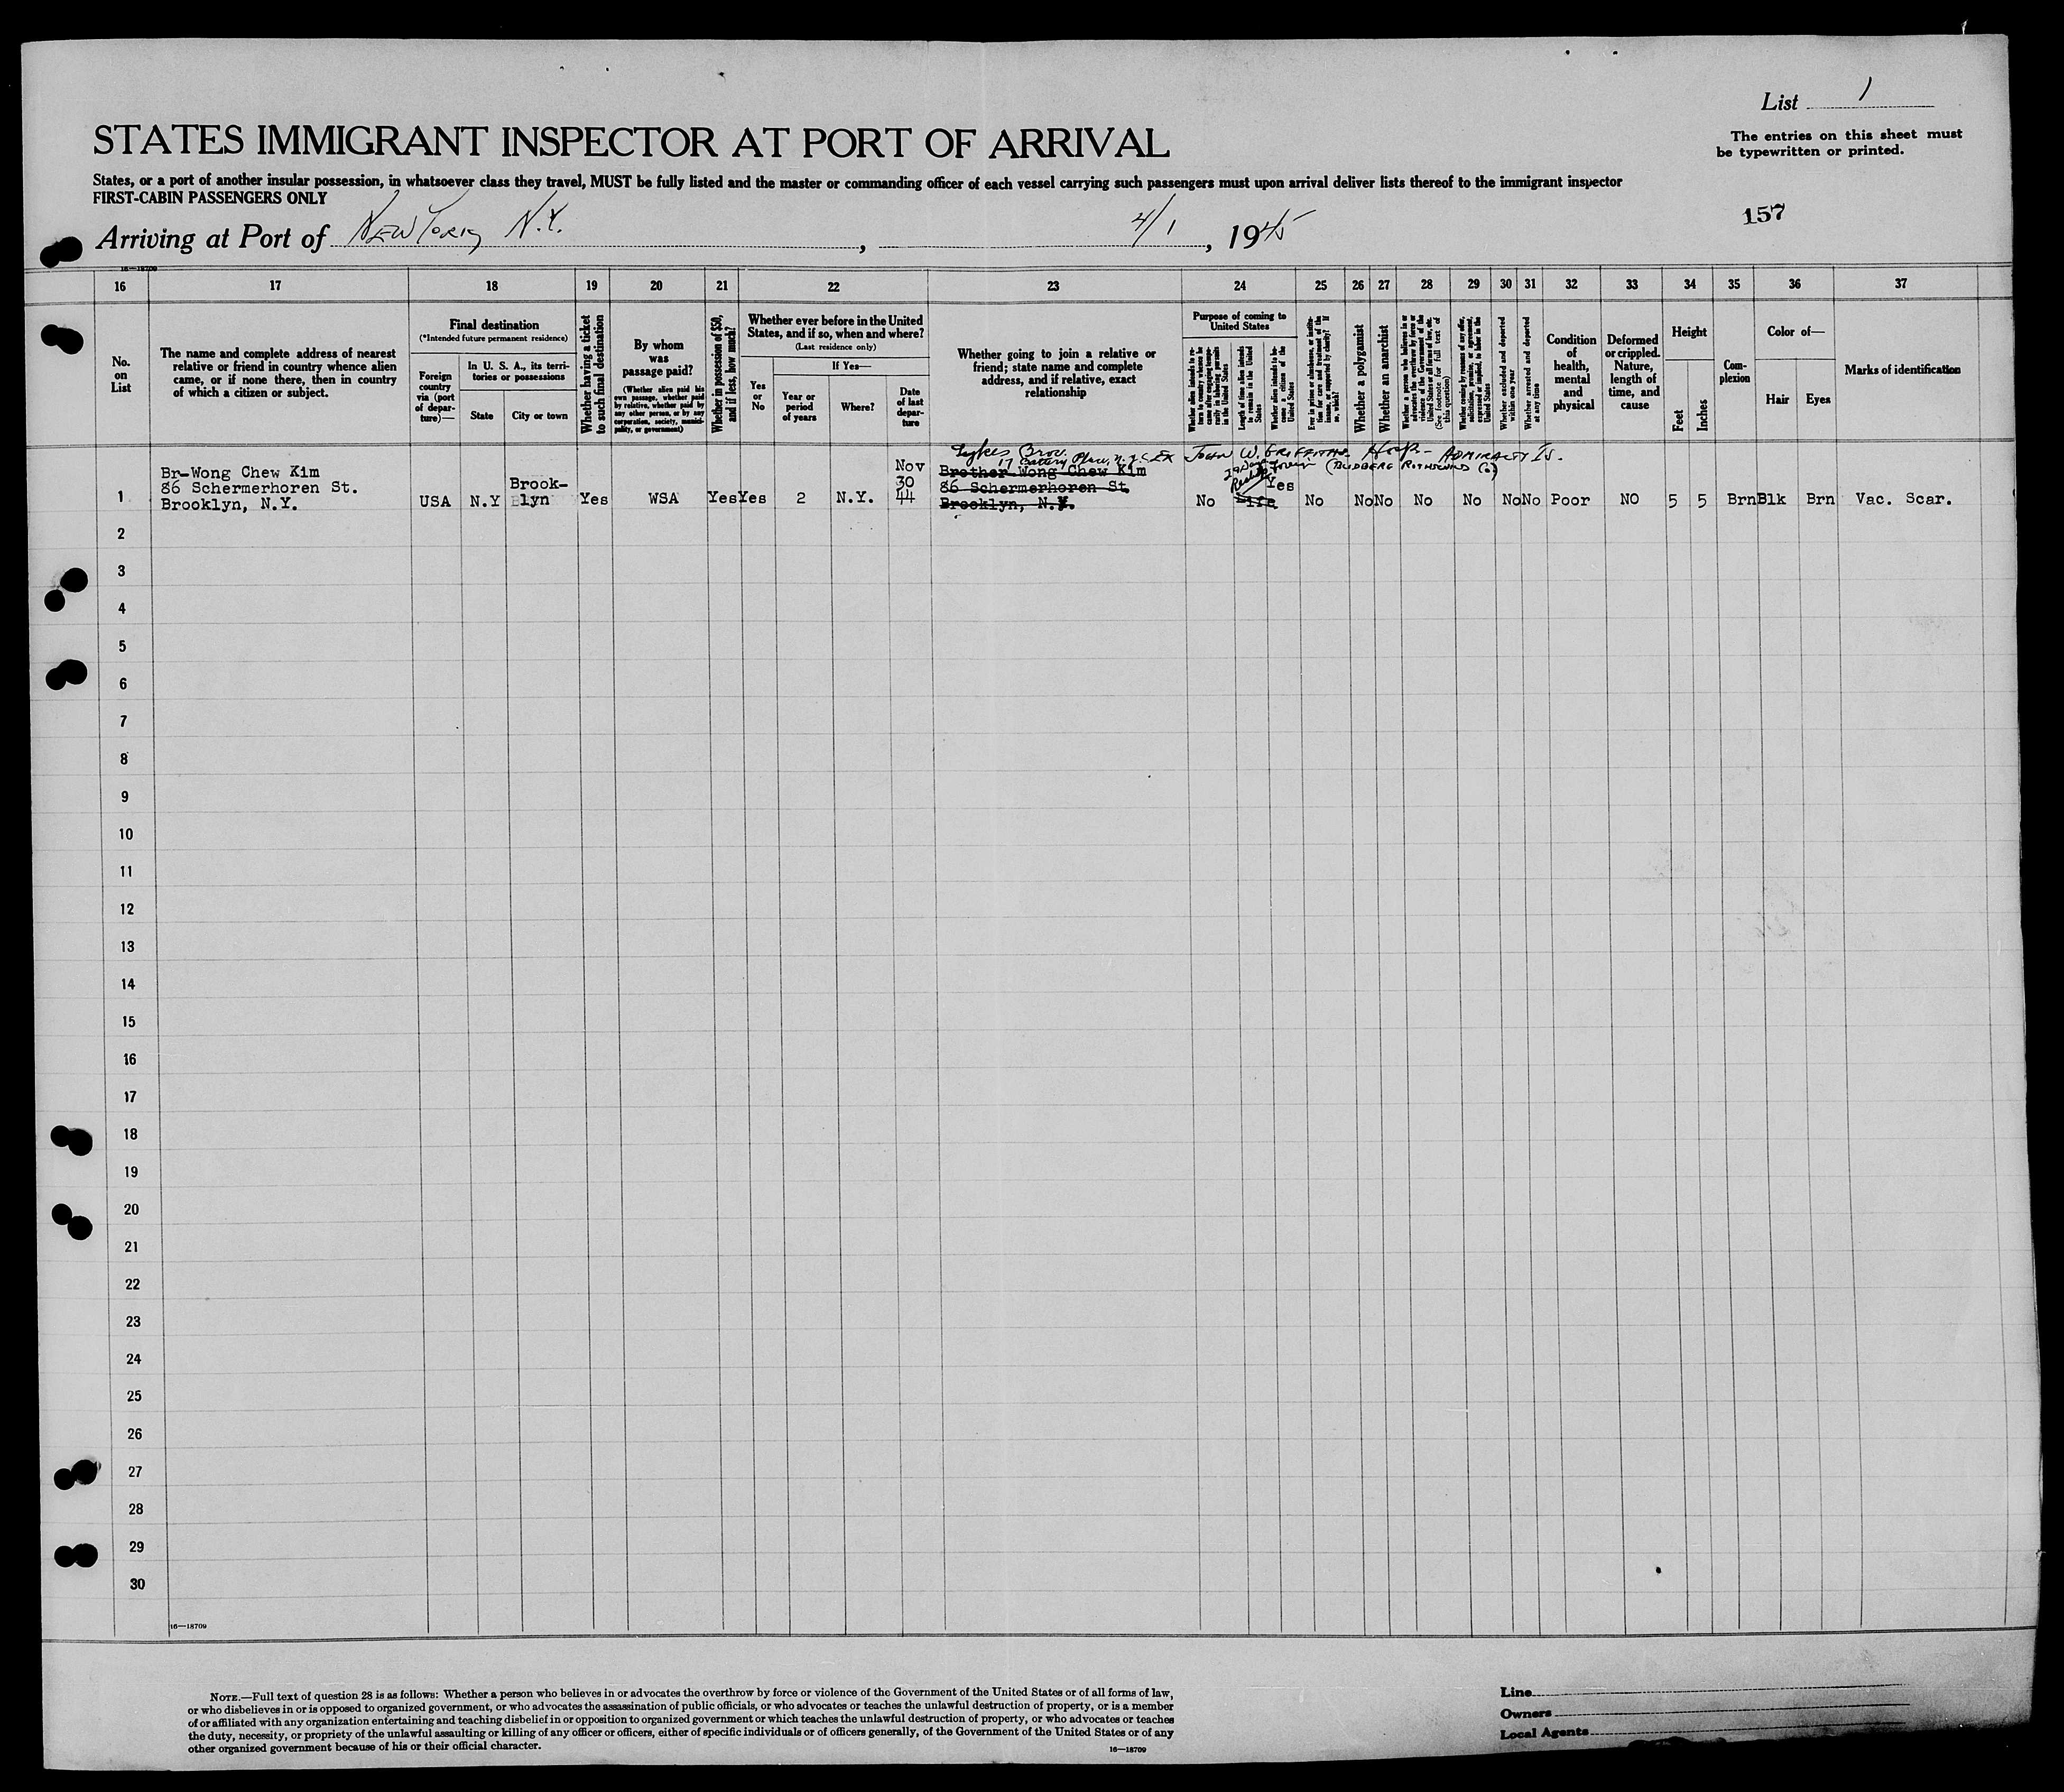 List 1
The entries on this sheet must
be typewritten or printed.
STATES IMMIGRANT INSPECTOR AT PORT OF ARRIVAL
States, or a port of another insular possession, in whatsoever class they travel, MUST be fully listed and the master or commanding officer of each vessel carrying such passengers must upon arrival deliver lists thereof to the immigrant inspector
FIRST-CABIN PASSENGERS ONLY
157
Arriving at Port of New York, N.Y. , 4/1 , 1945
16—18709
16 17 18 19 20 21 22 23 24 25 26 27 28 29 30 31 32 33 34 35 36 37
No. on List
The name and complete address of nearest
relative or friend in country whence alien
came, or if none there, then in country
of which a citizen or subject.
Final destination
(*Intended future permanent residence)
Foreign country via (port of departure)—
In U. S. A., its territories or possessions
State
City or town
Whether having a ticket to such final destination
By whom was passage paid?
(Whether alien paid his own passage, whether paid by relative, whether paid by any other person, or by any corporation, society, municipality, or government)
Whether in possession of $50, and if less, how much?
Whether ever before in the United
States, and if so, when and where?
(Last residence only)
Yes or No
If Yes—
Year or period of years
Where?
Date of last departure
Whether going to join a relative or
friend; state name and complete
address, and if relative, exact
relationship
Purpose of coming to United States
Length of time alien intends to remain in the United States
Whether alien intends to become a citizen of the United States
Whether a polygamist
Whether an anarchist
(See footnote for full text of this question)
Whether excluded and deported within one year
Whether arrested and deported at any time
Condition of health, mental and physical
Deformed or crippled. Nature, length of time, and cause
Height
Feet
Inches
Complexion
Color of—
Hair
Eyes
Marks of identification
Lykes Bros. 17 Battery Place, N.Y.C. Ex John W. Griffiths Hosp - Admiralty Is.
1
Br-Wong Chew Kim
86 Schermerhoren St.
Brooklyn, N.Y.
USA
N.Y
Brook-
lyn
Yes
WSA
Yes
Yes
2
N.Y.
Nov
30
44
Brother Wong Chew Kim
86 Schermerhoren St.
Brooklyn, N.Y.
No
Life
Yes
No No No No No No No Poor NO 5 5 Brn Blk Brn Vac. Scar.
2
3
4
5
6
7
8
9
10
11
12
13
14
15
16
17
18
19
20
21
22
23
24
25
26
27
28
29
30
16—18709
NOTE.—Full text of question 28 is as follows: Whether a person who believes in or advocates the overthrow by force or violence of the Government of the United States or of all forms of law,
or who disbelieves in or is opposed to organized government, or who advocates the assassination of public officials, or who advocates or teaches the unlawful destruction of property, or is a member
of or affiliated with any organization entertaining and teaching disbelief in or opposition to organized government or which teaches the unlawful destruction of property, or who advocates or teaches
the duty, necessity, or propriety of the unlawful assaulting or killing of any officer or officers, either of specific individuals or of officers generally, of the Government of the United States or of any
other organized government because of his or their official character.
16—18709
Line
Owners
Local Agents